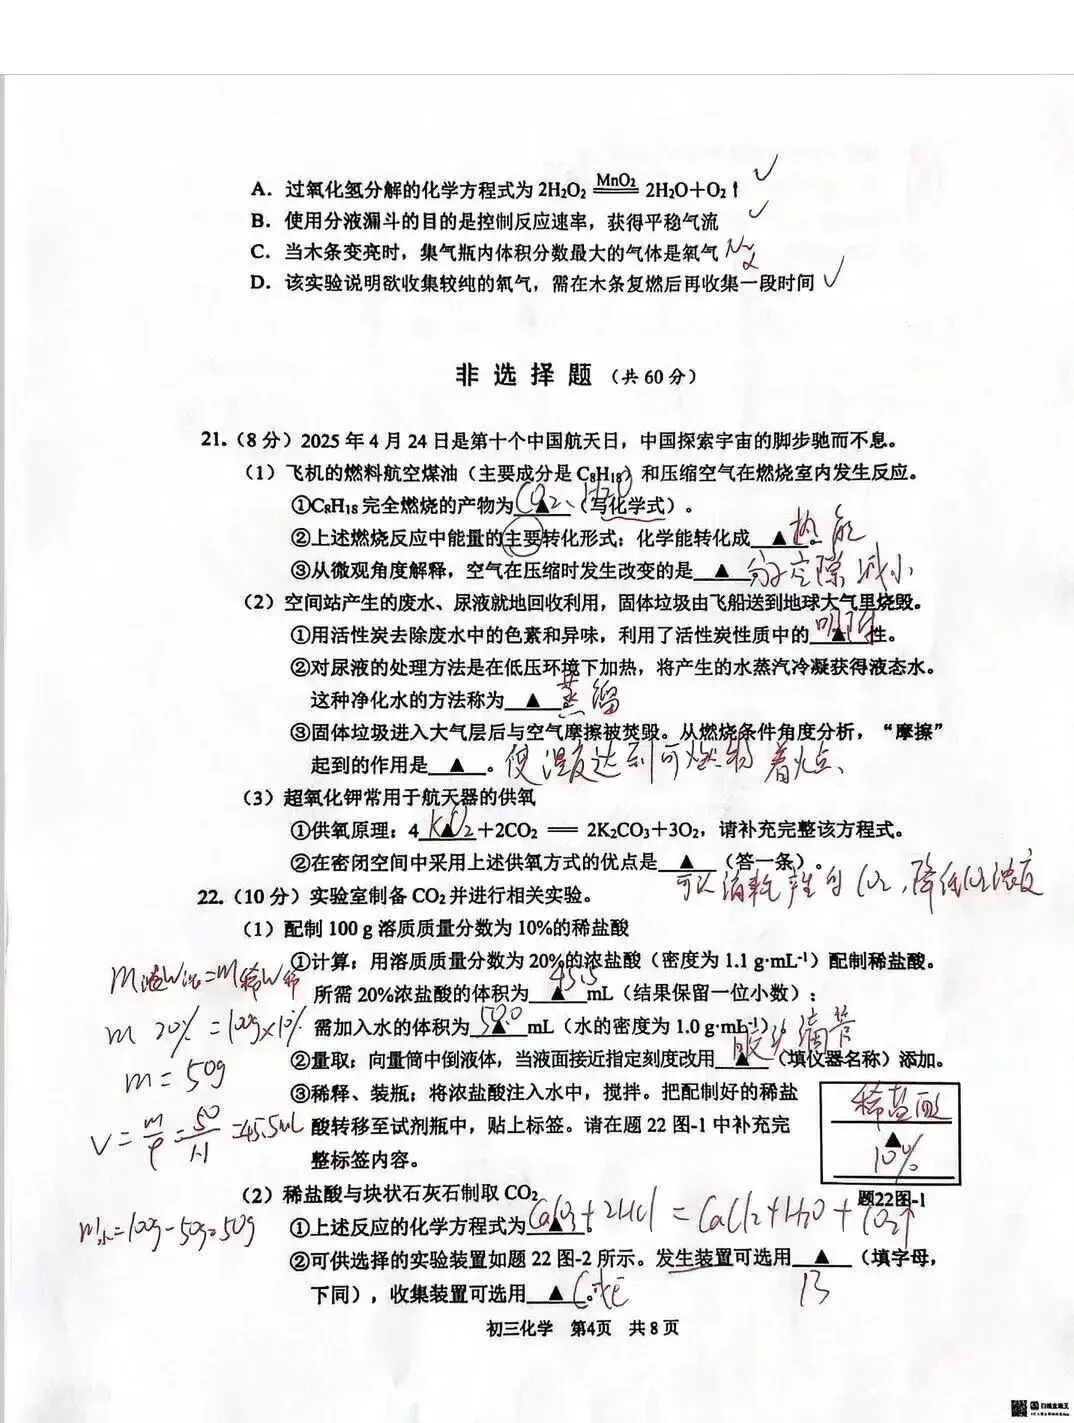 A．过氧化氢分解的化学方程式为 2H₂O₂ ══MnO₂══ 2H₂O+O₂↑ ✓
B．使用分液漏斗的目的是控制反应速率，获得平稳气流 ✓
C．当木条变亮时，集气瓶内体积分数最大的气体是氧气 N₂
D．该实验说明欲收集较纯的氧气，需在木条复燃后再收集一段时间 ✓
非 选 择 题（共 60 分）
21.（8 分）2025 年 4 月 24 日是第十个中国航天日，中国探索宇宙的脚步驰而不息。
（1）飞机的燃料航空煤油（主要成分是 C₈H₁₈）和压缩空气在燃烧室内发生反应。
①C₈H₁₈ 完全燃烧的产物为 CO₂、H₂O ▲（写化学式）。
②上述燃烧反应中能量的主要转化形式：化学能转化成 ▲ 热能。
③从微观角度解释，空气在压缩时发生改变的是 ▲ 分子空隙减小
（2）空间站产生的废水、尿液就地回收利用，固体垃圾由飞船送到地球大气里烧毁。
①用活性炭去除废水中的色素和异味，利用了活性炭性质中的 ▲ 吸附 性。
②对尿液的处理方法是在低压环境下加热，将产生的水蒸汽冷凝获得液态水。
这种净化水的方法称为 ▲ 蒸馏。
③固体垃圾进入大气层后与空气摩擦被焚毁。从燃烧条件角度分析，“摩擦”
起到的作用是 ▲ 。使温度达到可燃物着火点、
（3）超氧化钾常用于航天器的供氧
①供氧原理：4 KO₂ ▲ +2CO₂ ══ 2K₂CO₃+3O₂，请补充完整该方程式。
②在密闭空间中采用上述供氧方式的优点是 ▲ （答一条）。
可以消耗产生的CO₂，降低CO₂浓度
22.（10 分）实验室制备 CO₂ 并进行相关实验。
（1）配制 100 g 溶质质量分数为 10%的稀盐酸
①计算：用溶质质量分数为 20%的浓盐酸（密度为 1.1 g·mL⁻¹）配制稀盐酸。
m浓W浓=m稀W稀
所需 20%浓盐酸的体积为 45.5 ▲ mL（结果保留一位小数）；
m 20% =100g×10%
需加入水的体积为 50.0 ▲ mL（水的密度为 1.0 g·mL⁻¹）
②量取：向量筒中倒液体，当液面接近指定刻度改用 ▲ 胶头滴管（填仪器名称）添加。
m=50g
③稀释、装瓶：将浓盐酸注入水中，搅拌。把配制好的稀盐
酸转移至试剂瓶中，贴上标签。请在题 22 图-1 中补充完
V=m/ρ=50/1.1=45.5mL
整标签内容。
稀盐酸
▲
10%
题22图-1
（2）稀盐酸与块状石灰石制取 CO₂
m水=100g-50g=50g
①上述反应的化学方程式为 ▲ 。CaCO₃+2HCl=CaCl₂+H₂O+CO₂↑
②可供选择的实验装置如题 22 图-2 所示。发生装置可选用 ▲ （填字母，
B
下同），收集装置可选用 ▲ 。C或E
初三化学 第4页 共 8 页
扫描全能王